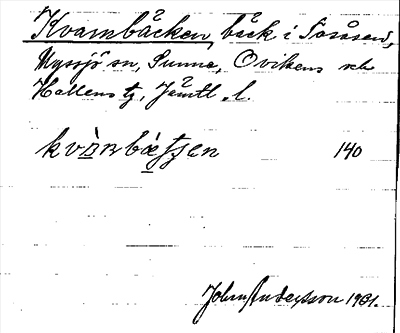 Kvarnbäcken, bäck i Foråsen,
Myssjö sn, Sunne, Ovikens och
Hallens tg, Jämtl. l.
kvànbætsen 140
John Andersson 1931.